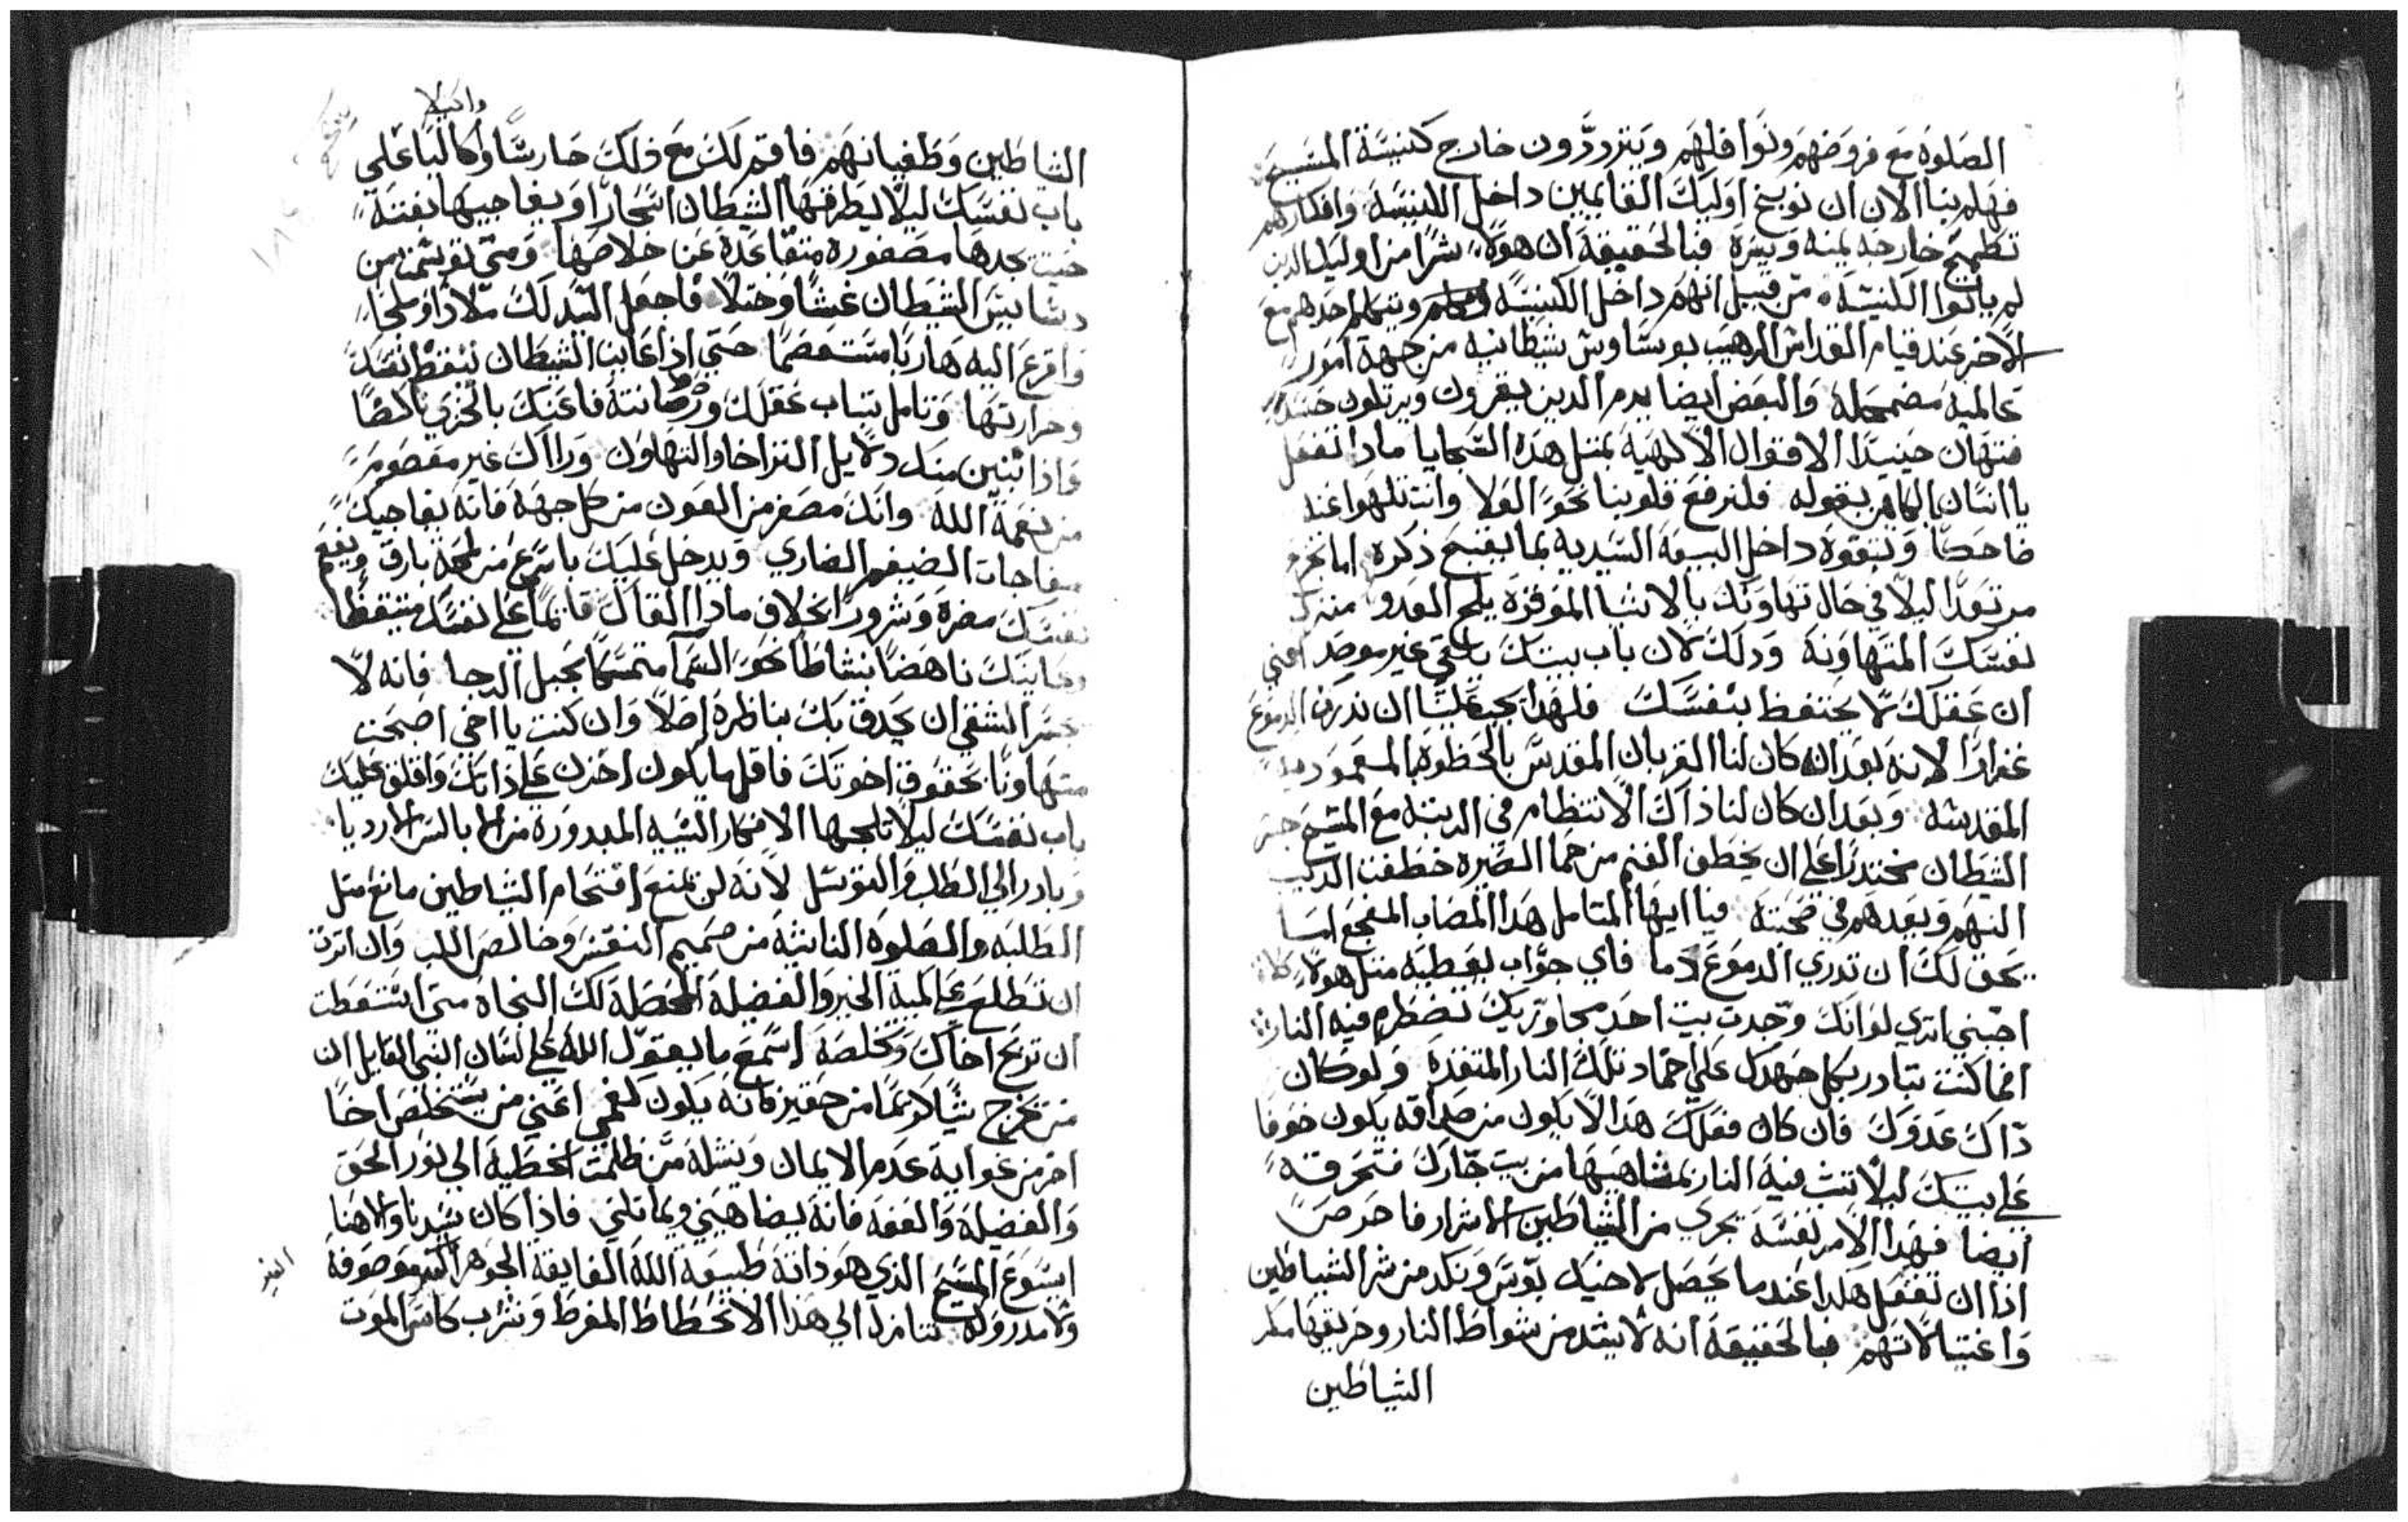 الصلوة مع فروضهم ونوافلهم ويتزدرون خارج كنيسة المسيح
فهلم بنا الان ان نوبخ اوليك القايمين داخل الكنيسة وافكارهم
تطمح خارجه يمنه ويسره فبالحقيقة ان هولاء شرا من اوليك الدين
لم ياتوا الكنيسة من قبيل انهم داخل الكنيسة ويتكلم احدهم مع
الاخر عند قيام القداس الرهيب بوساوس شيطانيه من جهة امور
عالميه مضمحله والبعض ايضا يدم الدين يقرون ويرتلون حسدا
فتهان حينيدا الاقوال الالهيه بمتل هده السجايا مادا تفعل
يا انسان الكاهن بقوله فلنرفع قلوبنا نحو العلا وانت تلهوا عند
ضاحكا وتتفوه داخل البيعه السيديه بما يقبح ذكره اما تجزع
مرتعدا ليلا في حال تهاونك بالاشيا الموقره يلج العدو منزل
نفسك المتهاونه ودلك لان باب بيتك باقي غير موصد اعني
ان عقلك لا يحتفظ بنفسك فلهدا يجب علينا ان ندرف الدموع
غزارا لانه بعد ان كان لنا القربان المقدس بالحظوه بالمعموديه
المقدسه وبعد ان كان لنا ذاك الانتظام في الرتبه مع المسيح جسر
الشيطان مختدرا على ان يخطف الغنم من حما الصيره خطفت الديب
النهم ويعدهم في صحبته فيا ايها المتامل هدا المصاب المفجع اما
يحق لك ان تدري الدموع دما فاي جواب يعطيه متل هولاء
اجبني اتري لو انك وجدت بيت احد مجاوريك تضطرم فيه النار
افما كنت تبادر بكل جهدك علي اخماد تلك النار المتقده ولو كان
داك عدوك فان كان فعلك هدا لا يكون من صداقه يكون خوفا
علي بيتك ليلا تتب فيه النار بمشاهبها من بيت جارك فتحرقه
ايضا فهدا الامر نفسه يجري من الشياطين الاشرار فاحرص
ادا ان تفعل هكدا عندما يحصل لاخيك بوس ونكد من شر الشياطين
واغتيالاتهم فبالحقيقة انه لاشد من شواظ النار وحريقها مكر
الشياطين
الشياطين وطغيانهم فاقم لك مع ذلك حارسا وكاليا على
باب نفسك ليلا يطرقها الشيطان اشحارا ويفاجيها بغتة
حيت يجدها مصفوره متقاعدة عن خلاصها ومتي توسمت من
دسايس الشيطان غشا وختلا فاجعل السيد لك ملادا وملجا
وافزع اليه هاربا مستعصما حتي اذا عاين الشيطان تيقظ نفسك
وحرارتها وتامل تبات عقلك ورصانته فاعنك بالخزي ناكصا
فاذا تبين منك دلايل التراخا والتهاون وراك غير معصوم
من نعمة الله وانك مصفر من العون من كل جهة فانه يفاجيك
مفاجات الضيغم الضاري ويدخل عليك باسرع من لمحة بارق ويفعم
نفسك مضره وشرور اختلاف مادا القاك قايما علي نفسك متيقظا
وعاينك ناهضا بنشاط نحو السما متمسكا بحبل الرجا فانه لا
يجسر الشقي ان يحدق بك بناظره اصلا وان كنت يا اخي اصبحت
متهاونا بحقوق اخوتك فاقلها يكون احزن علي ذاتك واقلق عليك
باب نفسك ليلا تلجها الافكار السيه المبدوره من الاباليس الارديا
وبادر الي الطلب والتوسل لانه لن يمنع اقتحام الشياطين مانع متل
الطلبه والصلوه الناشئة من صميم النفس وخالص اللب وان اترت
ان تطلع على كمية الخير والفضيلة المحصلة لك النجاة متي استقطت
ان تربح اخاك وتخلصه اسمع ما يقول الله علي لسان النبي القايل ان
من يخرج شيا كريما من حقير فانه يكون كفمي اعني من يستخلص اخا
اخر من غواية عدم الايمان وينشله من ظلمت الخطية الي نور الحق
والفضيلة والعفه فانه يضاهيني ويماتلني فاذا كان سيدنا والاهنا
ايسوع المسيح الذي هو ذاته طبيعة الله الفايقة الجوهر الغير موصوفة
ولا مدروكة تنازل الي هدا الانحطاط المفرط وشرب كاس الموت